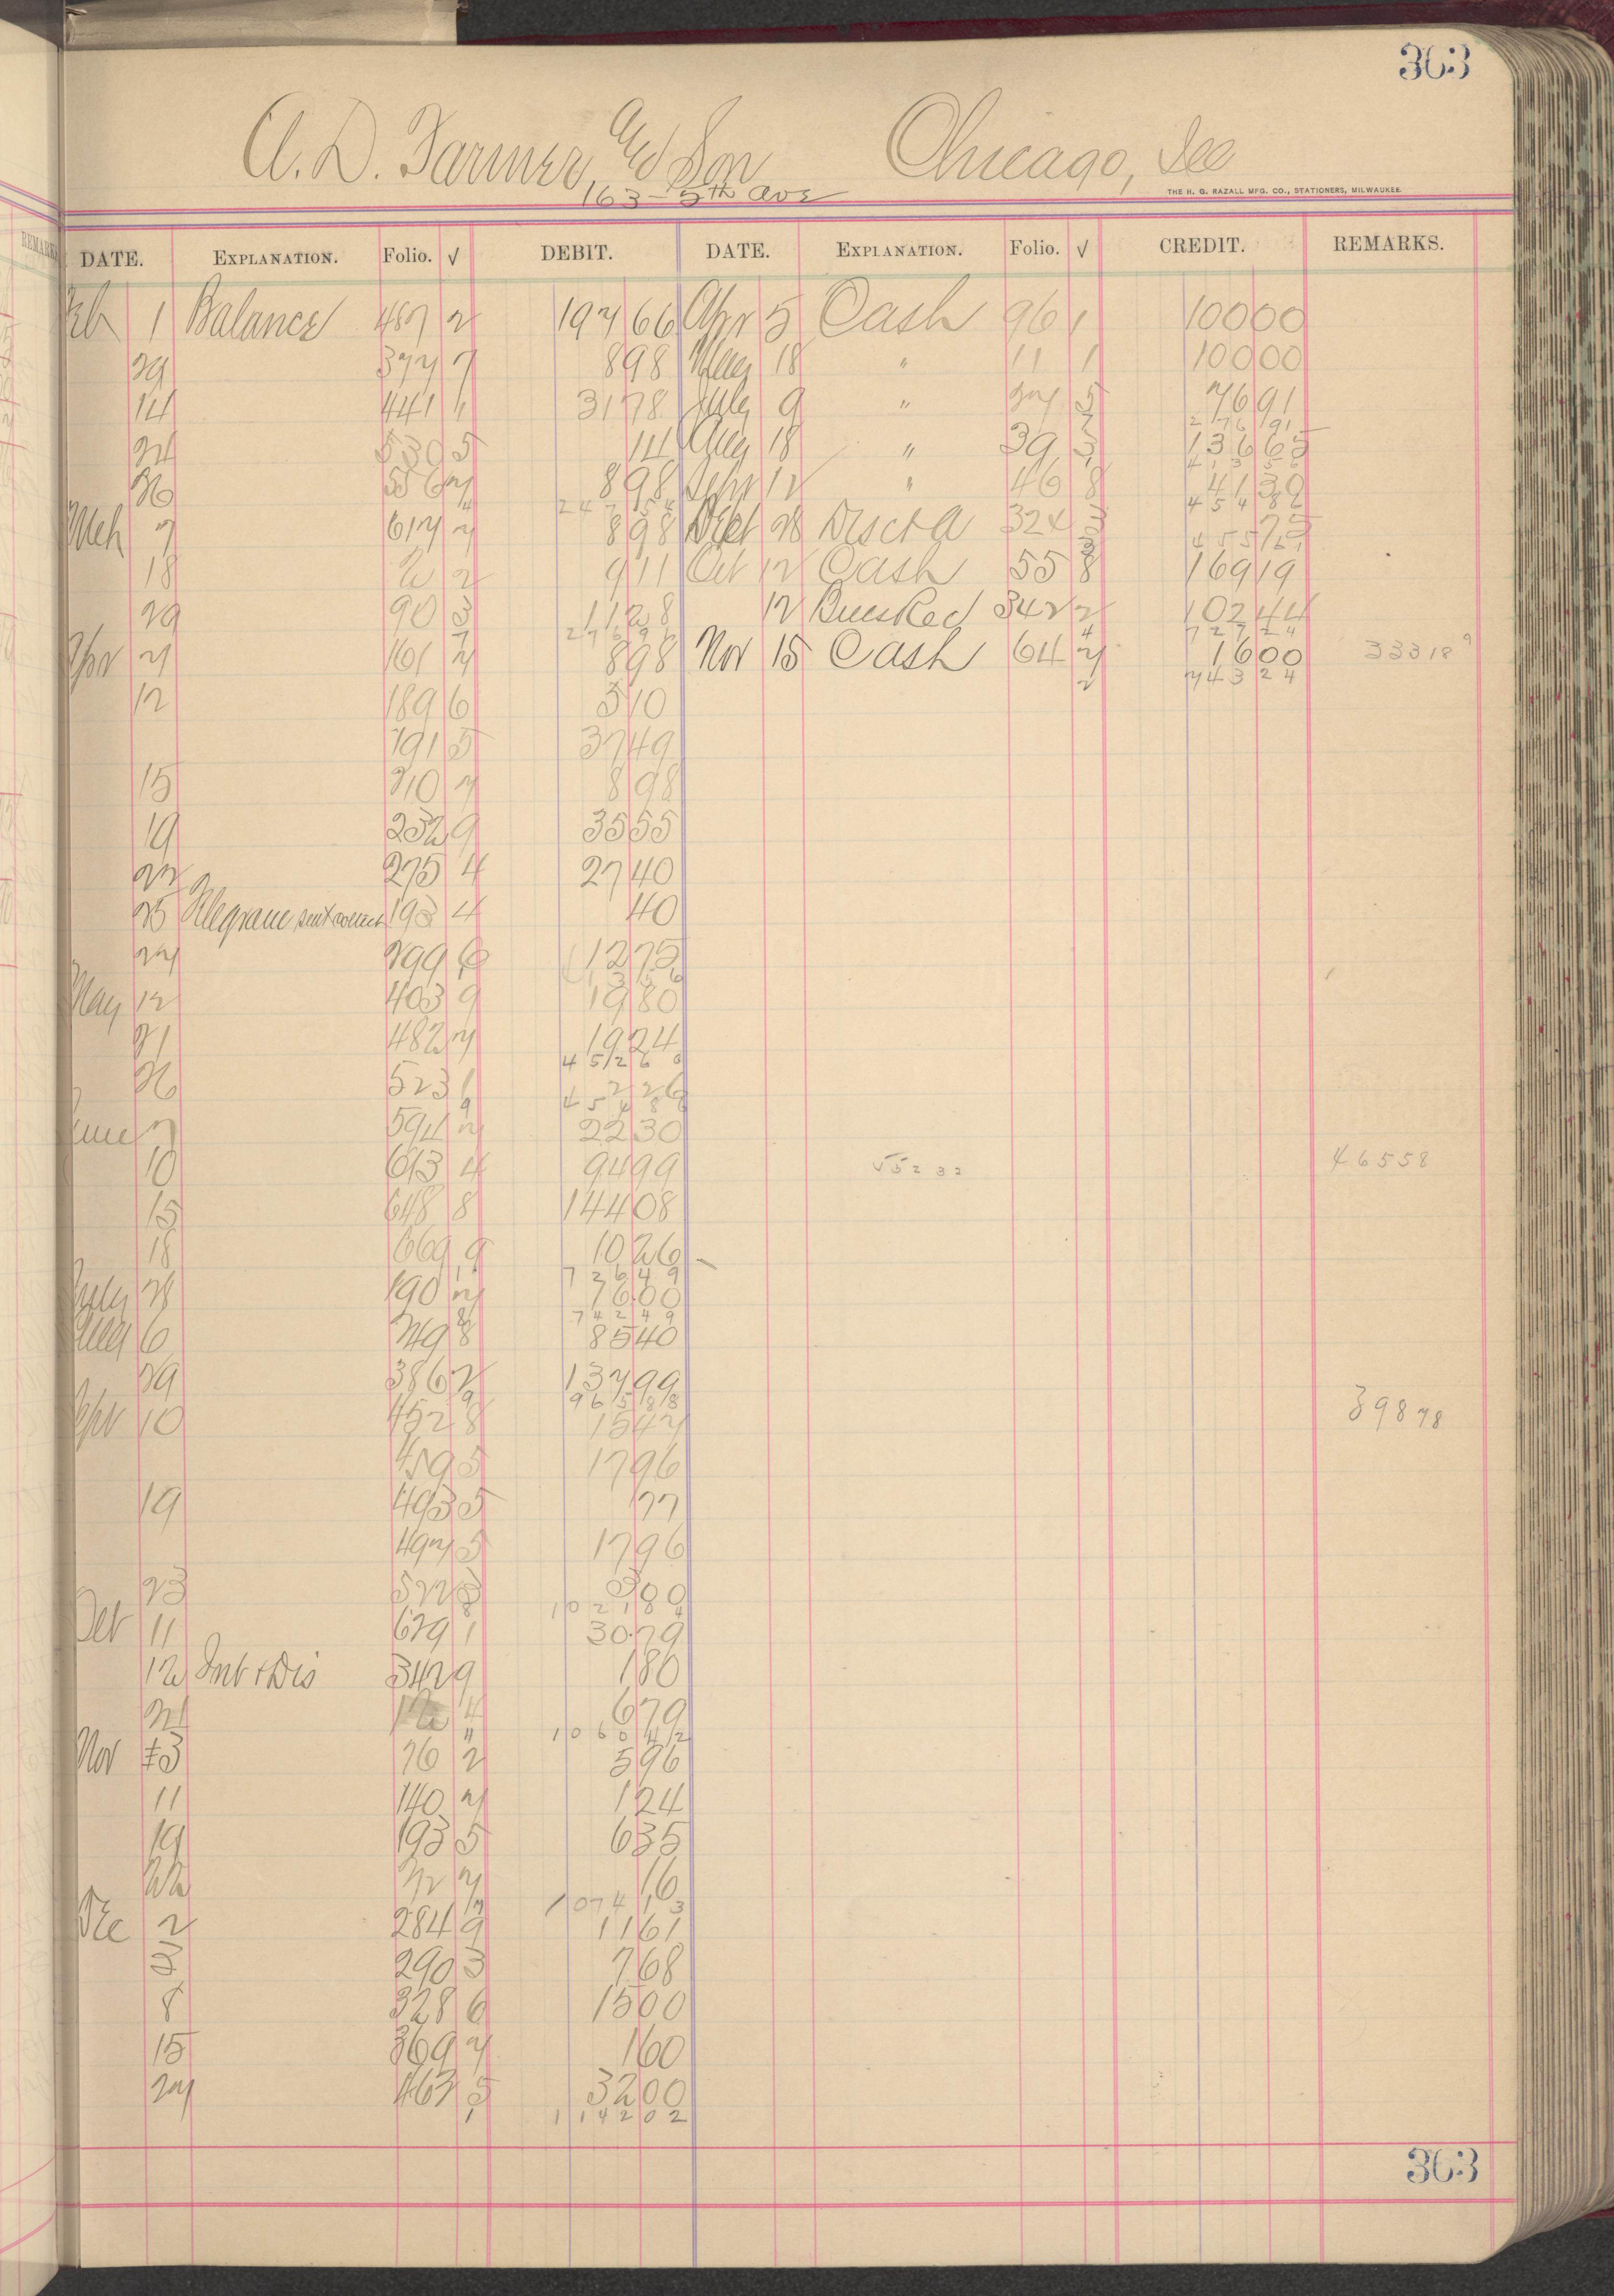 363
A. D. Farmer and Son Chicago, Ill
163 - 5th Ave
THE H. G. RAZALL MFG. CO., STATIONERS, MILWAUKEE.
DATE. EXPLANATION. Folio. √ DEBIT. DATE. EXPLANATION. Folio. √ CREDIT. REMARKS.
Feb 1 Balance 487 2 197 66 Apr 5 Cash 96 1 100 00
29 377 7 8 98 May 18 " 11 1 100 00
14 441 1 31 78 July 9 " 5 76 91
2 76 91
24 530 5 14 Aug 18 " 39 3 136 65
26 556 7 8 98 Sept 12 " 46 8 41 39
247 54 454 82
Mch 7 617 7 8 98 Sept 28 Discta 324 3 75
455 61
18 2 2 9 11 Oct 12 Cash 55 8 169 19
29 90 3 11 28 12 Bills Rec 342 2 102 44
276 91 727 24
Apr 7 161 7 8 98 Nov 15 Cash 64 7 16 00 333 18
743 24
12 189 6 5 10
191 5 37 49
15 210 7 8 98
19 232 9 35 55
22 275 4 27 40
25 Telegram sent collect 193 4 40
27 299 6 12 75
May 12 403 9 19 80
21 482 7 19 24
452 60
26 523 1 2 26
454 86
June 7 594 7 22 30
10 613 4 94 99 552 32 465 58
15 648 8 144 08
18 669 9 10 26
726 49
July 28 190 7 16 00
742 49
Aug 6 249 8 85 40
29 386 2 137 99
965 88
Sept 10 452 8 15 47 398 78
459 5 17 96
19 493 5 1 77
497 5 17 96
23 522 3 3 00
1021 84
Oct 11 679 1 30 79
12 Int & Dis 342 9 1 80
21 12 4 6 79
1060 42
Nov 3 76 2 5 96
11 140 7 1 24
19 193 5 6 35
22 7 16
1074 13
Dec 2 284 9 11 61
3 290 3 7 68
8 328 6 15 00
15 369 7 1 60
27 467 5 32 00
1142 02
363